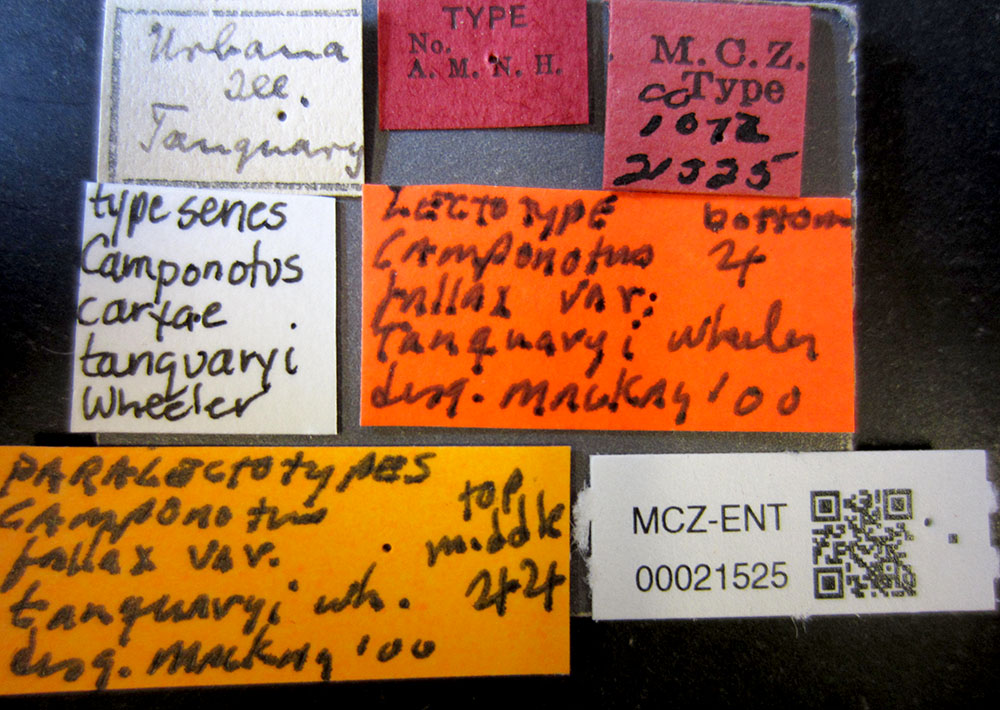 Urbana
Ill.
Tanquary
TYPE
No.
A. M. N. H.
M. C. Z.
CoType
1072
21525
type series
Camponotus
caryae
tanquaryi
Wheeler
LECTOTYPE bottom
Camponotus
fallax var.
Tanquaryi Wheeler
desg. MACKAY '00
PARALECTOTYPES
Camponotus top
fallax var. middle
tanquaryi Wh.
desg. MACKAY '00
MCZ-ENT
00021525